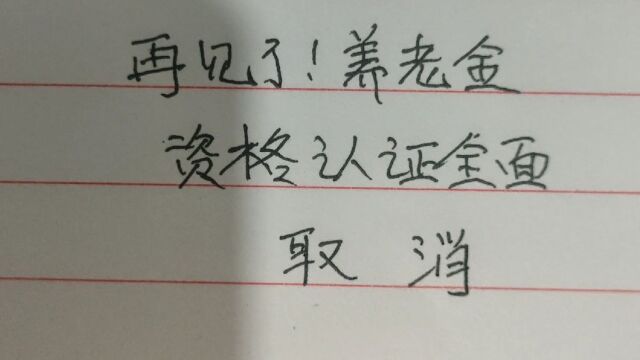 再见了!养老金
资格认证全面
取消